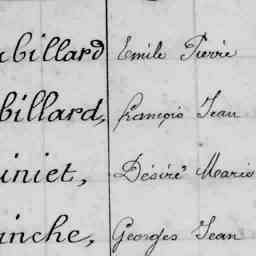 billard Emile Pierre
billard, François Jean
iniet, Désiré Marie
inche, Georges Jean